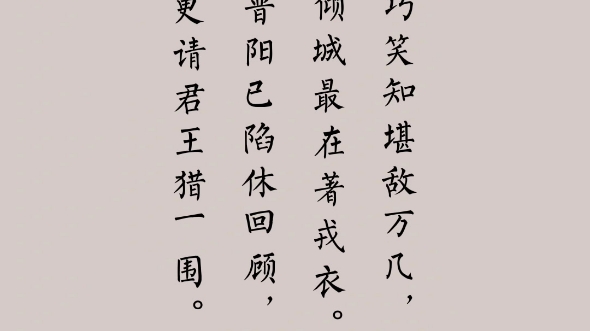 巧笑知堪敌万几，
倾城最在著戎衣。
晋阳已陷休回顾，
更请君王猎一围。